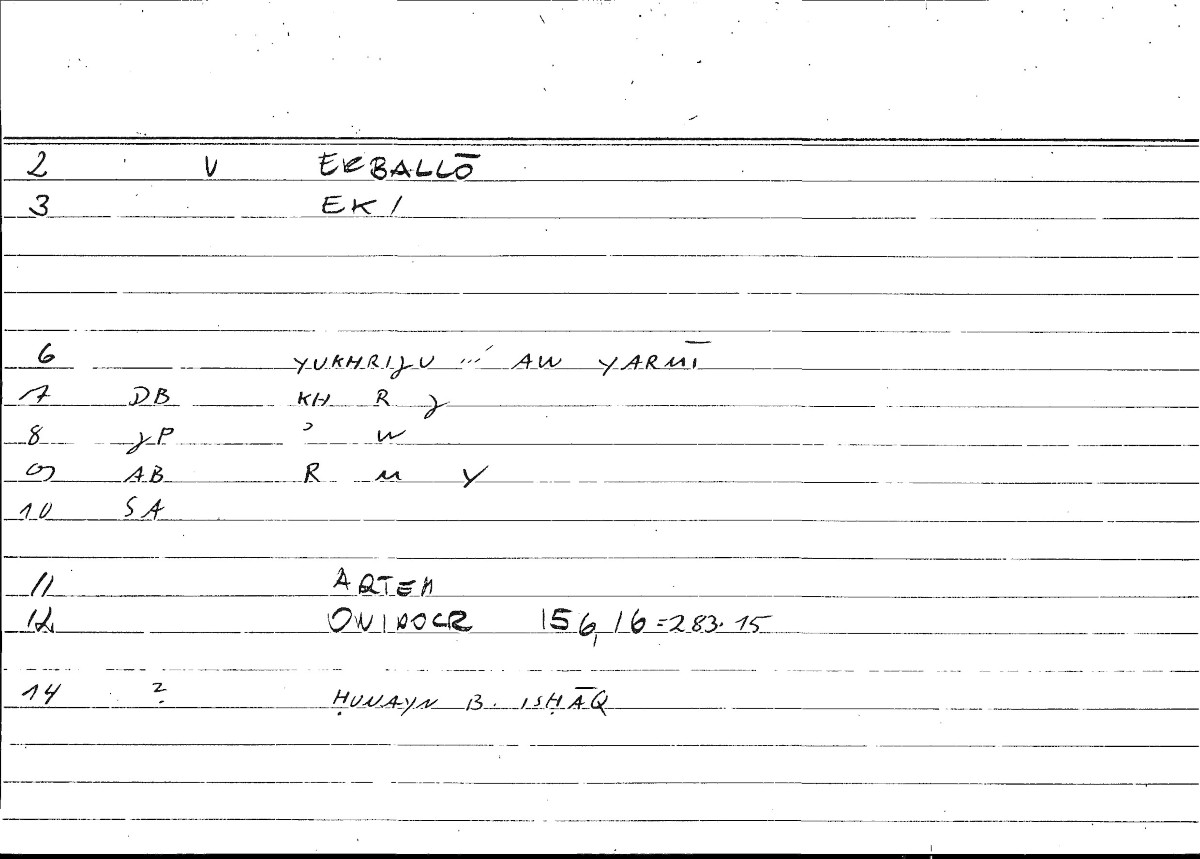 2 V EKBALLŌ
3 EK /
6 YUKHRIJU ...' AW YARMĪ
7 DB KH R J
8 JP ʾ W
9 AB R M Y
10 SA
11 ARTEM
12 ONIROCR 156,16=283.15
14 ? ḤUNAYN B. ISḤĀQ